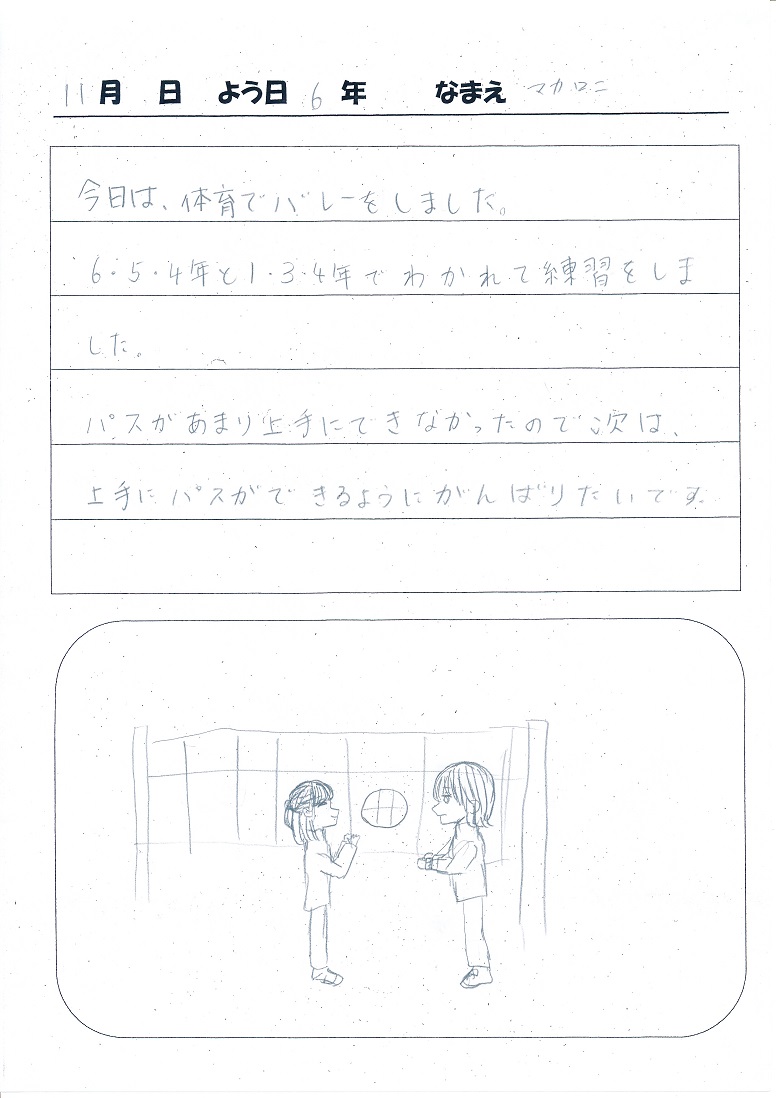 11月　日　よう日 6 年　なまえ マカロニ
今日は、体育でバレーをしました。
6・5・4年と1・3・4年でわかれて練習をしま
した。
パスがあまり上手にできなかったので次は、
上手にパスができるようにがんばりたいです。